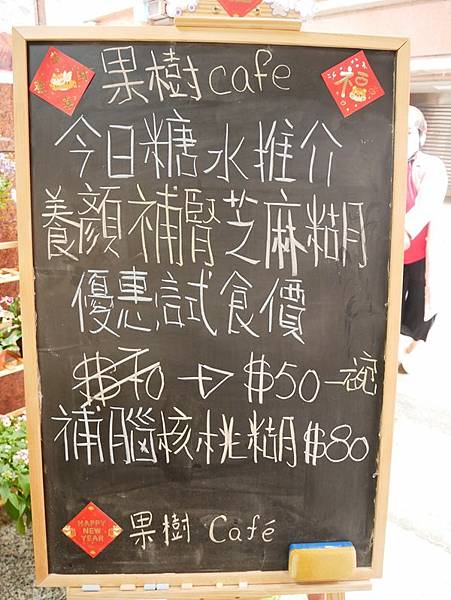 果樹cafe
福
今日糖水推介
養顏補腎芝麻糊
優惠試食價
$70 → $50一碗
補腦核桃糊$80
HAPPY
NEW
YEAR
果樹 Café